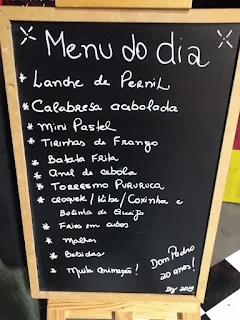 Menu do dia
* Lanche de Pernil
* Calabresa acebolada
* Mini Pastel
* Tirinhas de Frango
* Batata Frita
* Anel de cebola
* Torresmo Pururuca
* croquete / Kibe / Coxinha e
Bolinha de Queijo
* Frios em cubos
* Molhos
* Bebidas
* Muita Animação!
Dom Pedro
20 anos!
2019